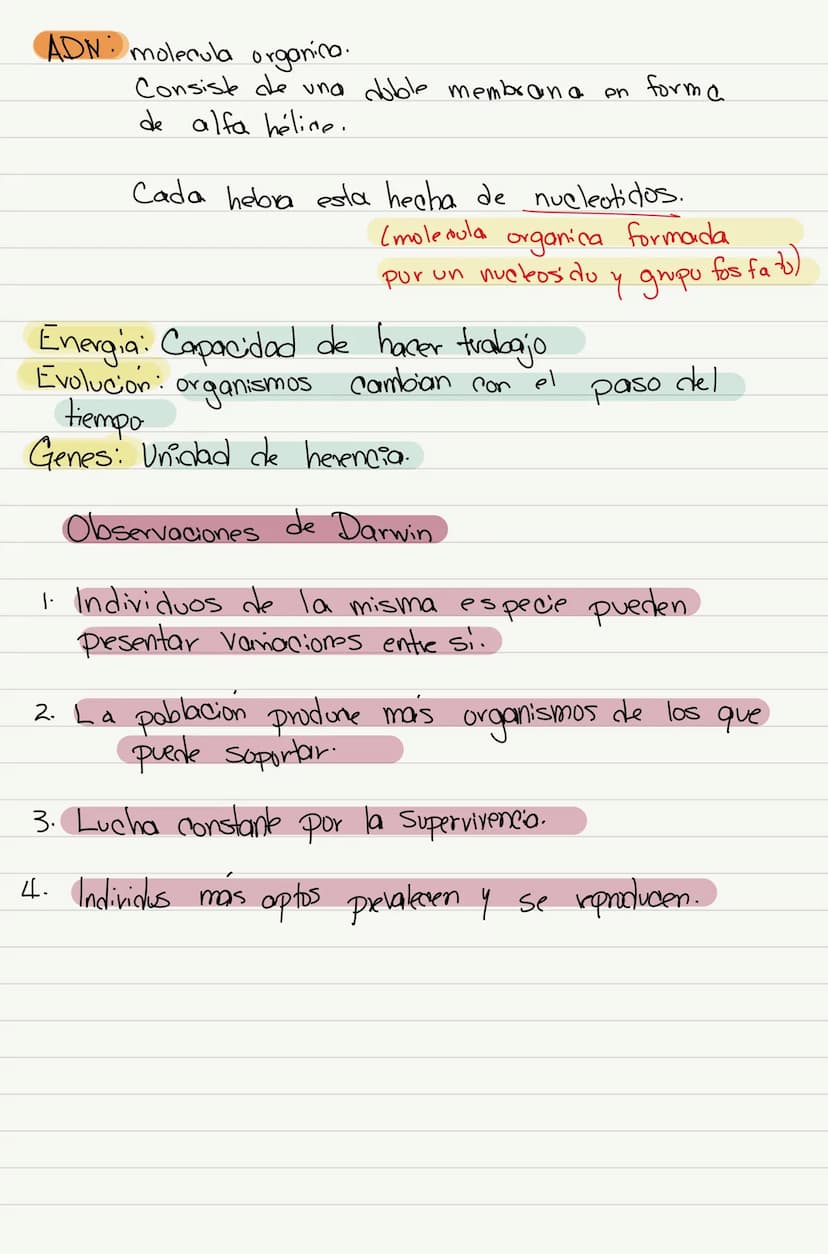 ADN: molecula organica.
Consiste de una doble membrana en forma
de alfa hélice.
Cada hebra esta hecha de nucleotidos.
(molecula organica formada
por un nucleosido y grupo fosfato)
Energía: Capacidad de hacer trabajo
Evolución: organismos cambian con el paso del
tiempo
Genes: Unidad de herencia.
Observaciones de Darwin
1. Individuos de la misma especie pueden
presentar variaciones entre sí.
2. La población produce más organismos de los que
puede soportar.
3. Lucha constante por la Supervivencia.
4. Individus más aptos prevalecen y se reproducen.